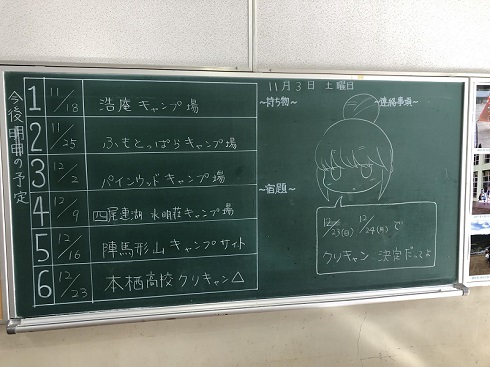 11月3日 土曜日
今後の予定
1 11/18 浩庵キャンプ場
2 11/25 ふもとっぱらキャンプ場
3 12/2 パインウッドキャンプ場
4 12/9 四尾連湖 水明荘キャンプ場
5 12/16 陣馬形山キャンプサイト
6 12/23 本栖高校クリキャン△
~持ち物~
~宿題~
~連絡事項~
12/23(日) 12/24(月)で
クリキャン決定だってよ